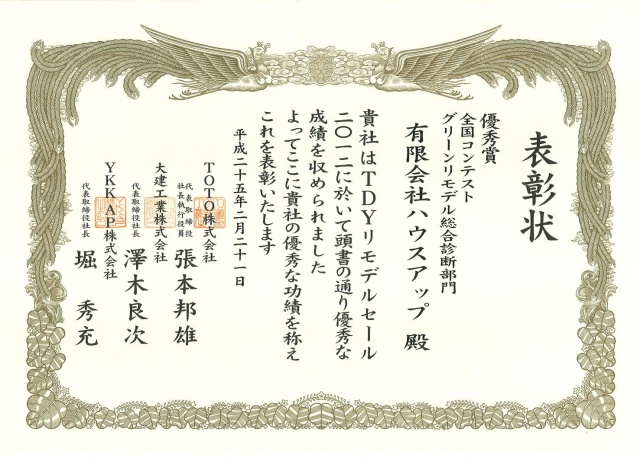 表彰状
優秀賞
全国コンテスト
グリーンリモデル総合診断部門
有限会社ハウスアップ 殿
貴社はTDYリモデルセール
二〇一二に於いて頭書の通り優秀な
成績を収められました
よってここに貴社の優秀な功績を称え
これを表彰いたします
平成二十五年二月二十一日
TOTO株式会社
代表取締役
社長執行役員
張本邦雄
大建工業株式会社
代表取締役社長
澤木良次
YKK AP株式会社
代表取締役社長
堀 秀充